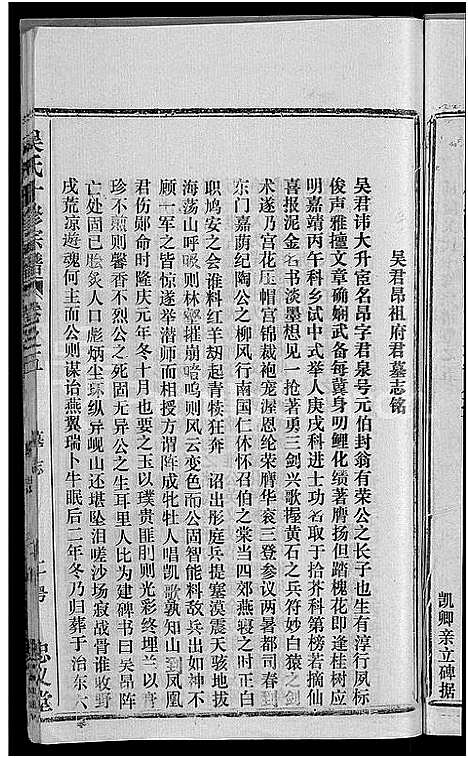 凯卿亲立碑据
吴君昂祖府君墓志铭
吴君讳大升宦名昂字君泉号元伯封翁有荣公之长子也生有淳行夙标
俊声雅擅文章确娴武备每冀身叨鲤化绩著膺扬但踏槐花即逢桂树应
明嘉靖丙午科乡试中式举人庚戌科进士功名取于拾芥科第榜若摘仙
喜报泥金名书淡墨想见一抢著勇三剑兴歌握黄石之兵符妙白猿之剑
术遂乃宫花压帽宫锦裁袍宠渥恩纶荣膺华衮三登参议两暑都司春到
东门嘉荫纪陶公之柳风行南国仁休怀召伯之棠当四郊燕寝之时正白
职鸠安之会谁料红羊胡起青犊狂奔 诏出彤庭兵提塞漠震天骇地拔
海荡山呼吸则林壑摧崩喑呜则风云变色而公固智能料敌兵出如神不
顾一军之皆惊遂举潜师而相授方谓阵成牝牡人唱凯歌孰知山到凤凰
君伤郧命时隆庆元年冬十月也要之玉以璞贵匪刖则光彩终埋兰以膏
珍不煎则馨香不烈公之死固无异公之生耳里人比为建碑书曰吴昂阵
亡处固已脍炙人口彪炳尘环纵异岘山还堪坠泪嗟沙场寂战骨谁收野
戍荒凉遊魂何主而公则谋诒燕翼瑞卜牛眠后二年冬乃归葬于 治东六
吴氏十修宗谱 卷之五
墓志
忠义堂